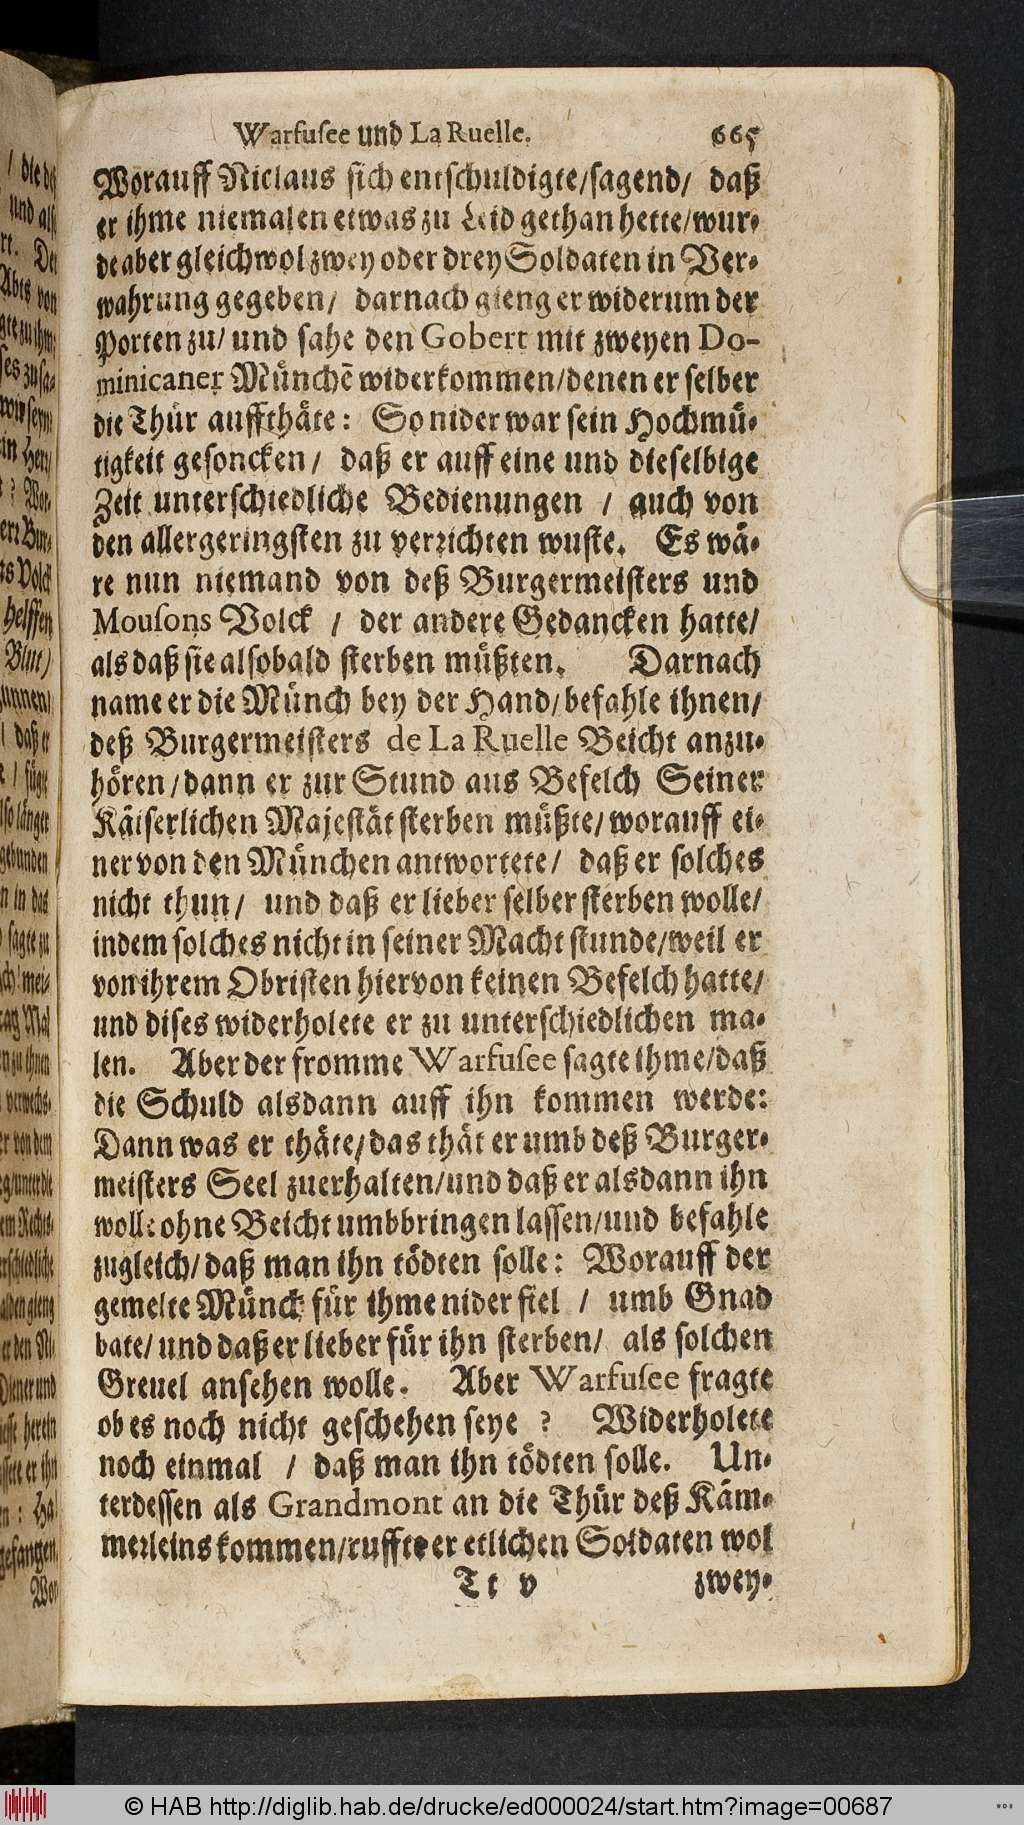 Warfusee und La Ruelle. 665
Worauff Niclaus sich entschuldigte/sagend/ daß
er ihme niemalen etwas zu Leid gethan hette/wur-
de aber gleichwol zwey oder drey Soldaten in Ver-
wahrung gegeben/ darnach gieng er widerum der
Porten zu/ und sahe den Gobert mit zweyen Do-
minicaner Münchẽ widerkommen/denen er selber
die Thür auffthäte: So nider war sein Hochmü-
tigkeit gesoncken/ daß er auff eine und dieselbige
Zeit unterschiedliche Bedienungen / auch von
den allergeringsten zu verrichten wuste. Es wä-
re nun niemand von deß Burgermeisters und
Mousons Volck / der andere Gedancken hatte/
als daß sie alsobald sterben müßten. Darnach
name er die Münch bey der Hand/befahle ihnen/
deß Burgermeisters de La Ruelle Beicht anzu-
hören/dann er zur Stund aus Befelch Seiner
Käiserlichen Majestät sterben müßte/worauff ei-
ner von den München antwortete/ daß er solches
nicht thun/ und daß er lieber selber sterben wolle/
indem solches nicht in seiner Macht stunde/weil er
von ihrem Obristen hiervon keinen Befelch hatte/
und dises widerholete er zu unterschiedlichen ma-
len. Aber der fromme Warfusee sagte ihme/daß
die Schuld alsdann auff ihn kommen werde:
Dann was er thäte/das thät er umb deß Burger-
meisters Seel zuerhalten/und daß er alsdann ihn
wolle ohne Beicht umbbringen lassen/und befahle
zugleich/daß man ihn tödten solle: Worauff der
gemelte Münch für ihme nider fiel / umb Gnad
bate/und daß er lieber für ihn sterben/ als solchen
Greuel ansehen wolle. Aber Warfusee fragte
ob es noch nicht geschehen seye ? Widerholete
noch einmal / daß man ihn tödten solle. Un-
terdessen als Grandmont an die Thür deß Käm-
merleins kommen/ruffte er etlichen Soldaten wol
Tt v zwey-
© HAB http://diglib.hab.de/drucke/ed000024/start.htm?image=00687